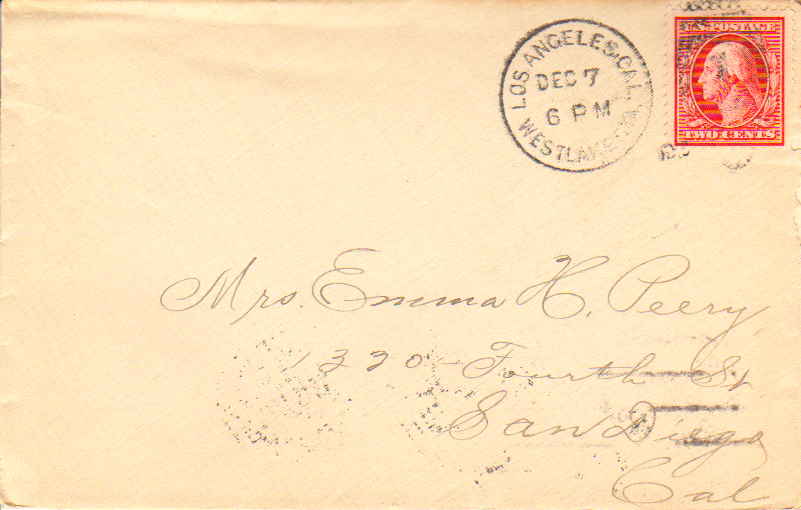 LOS ANGELES, CAL.
DEC 7
6 PM
WESTLAKE
U.S. POSTAGE
TWO CENTS
Mrs. Emma H. Peery
1330 Fourth St
San Diego
Cal